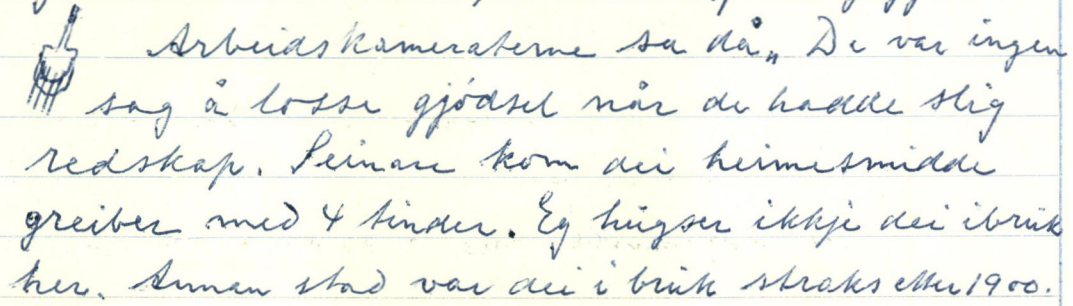 Arbeidskameraterne sa då „ De var ingen
sag å losse gjødsel når de hadde slig
redskap. Seinare kom dei heimesmidde
greiber med 4 tinder. Eg hugser ikkje dei i bruk
her. Annan stad var dei i bruk straks etter 1900.